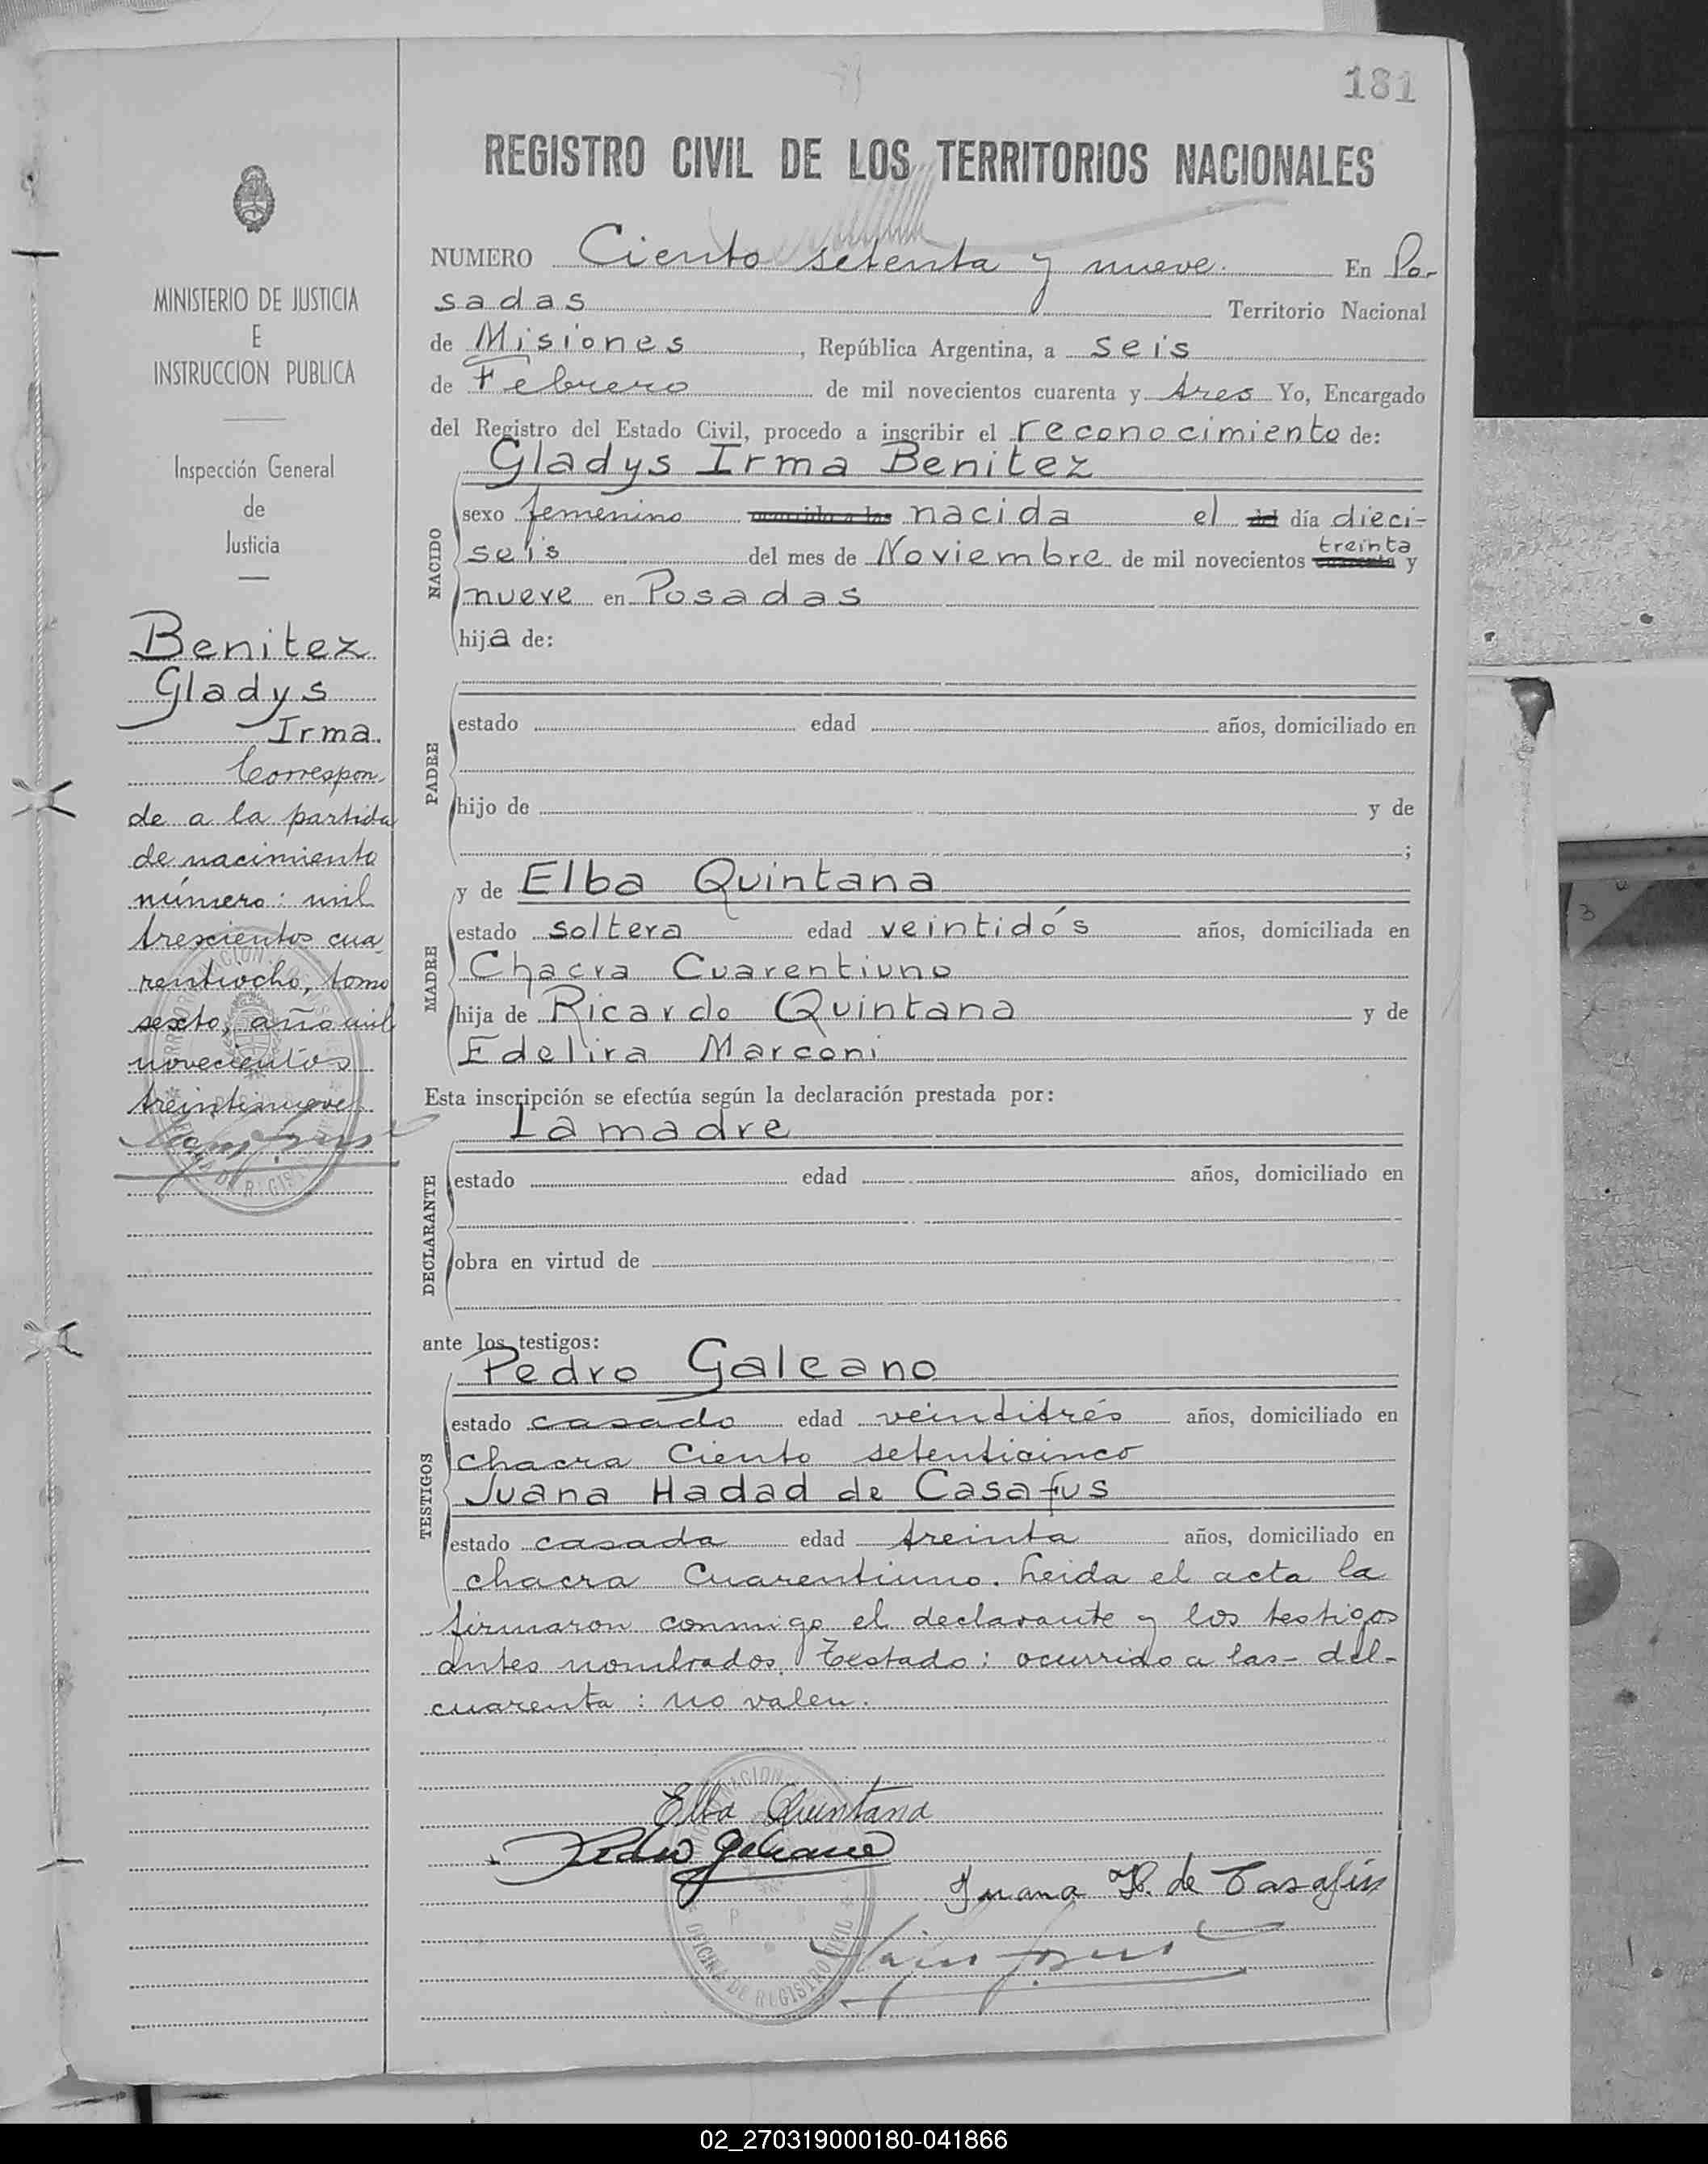 181
REGISTRO CIVIL DE LOS TERRITORIOS NACIONALES
MINISTERIO DE JUSTICIA
E
INSTRUCCION PUBLICA
Inspección General
de
Justicia
Benitez
Gladys
Irma.
Correspon-
de a la partida
de nacimiento
número: mil
trescientos cua-
rentiocho, tomo
sexto, año mil
novecientos
treintinueve
NUMERO Ciento setenta y nueve. En Po-
sadas Territorio Nacional
de Misiones, República Argentina, a seis
de Febrero de mil novecientos cuarenta y tres Yo, Encargado
del Registro del Estado Civil, procedo a inscribir el reconocimiento de:
Gladys Irma Benitez
NACIDO
sexo femenino ocurrido a las nacida el del día dieci-
seis del mes de Noviembre de mil novecientos cuarenta treinta y
nueve en Posadas
hija de:
PADRE
estado edad años, domiciliado en
hijo de y de
;
MADRE
y de Elba Quintana
estado soltera edad veintidós años, domiciliada en
Chacra Cuarentiuno
hija de Ricardo Quintana y de
Edelira Marconi
Esta inscripción se efectúa según la declaración prestada por:
La madre
DECLARANTE
estado edad años, domiciliado en
obra en virtud de
ante los testigos:
Pedro Galeano
TESTIGOS
estado casado edad veintitrés años, domiciliado en
chacra Ciento setenticinco
Juana Hadad de Casafus
estado casada edad treinta años, domiciliado en
chacra Cuarentiuno. Leida el acta la
firmaron conmigo el declarante y los testigos
antes nombrados. Testado: ocurrido a las- del-
cuarenta: no valen.
Elba Quintana
Pedro Galeano
Juana H. de Casafús
OFICINA DE REGISTRO CIVIL
02_270319000180-041866